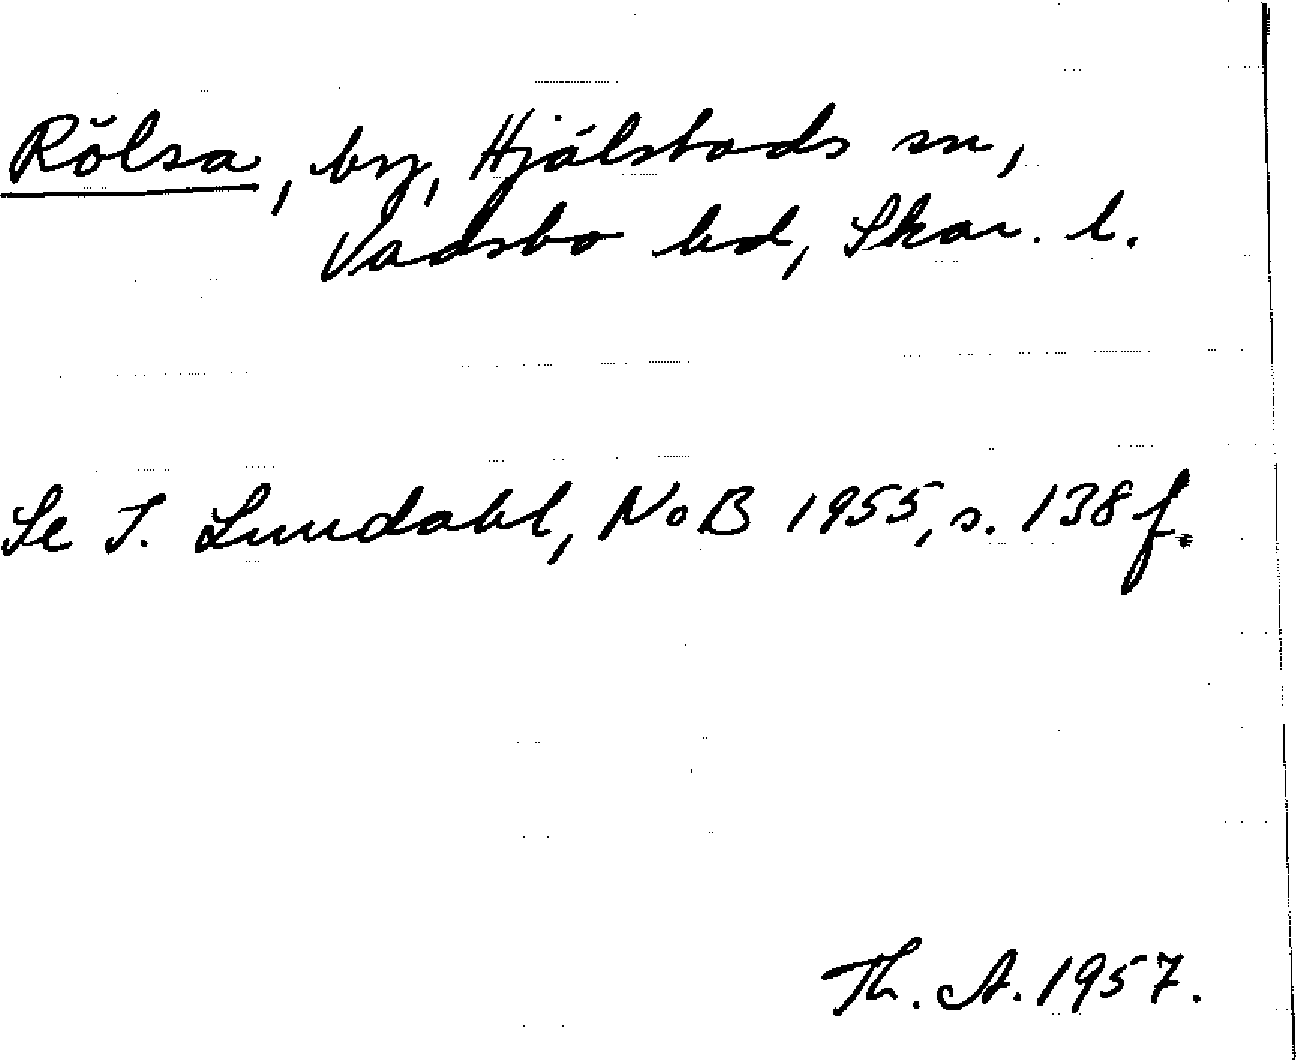 Rölsa, by, Hjälstads sn,
Vadsbo hd, Skar. l.
Se I. Lundahl, NoB 1955, s. 138 f.
Th. A. 1957.